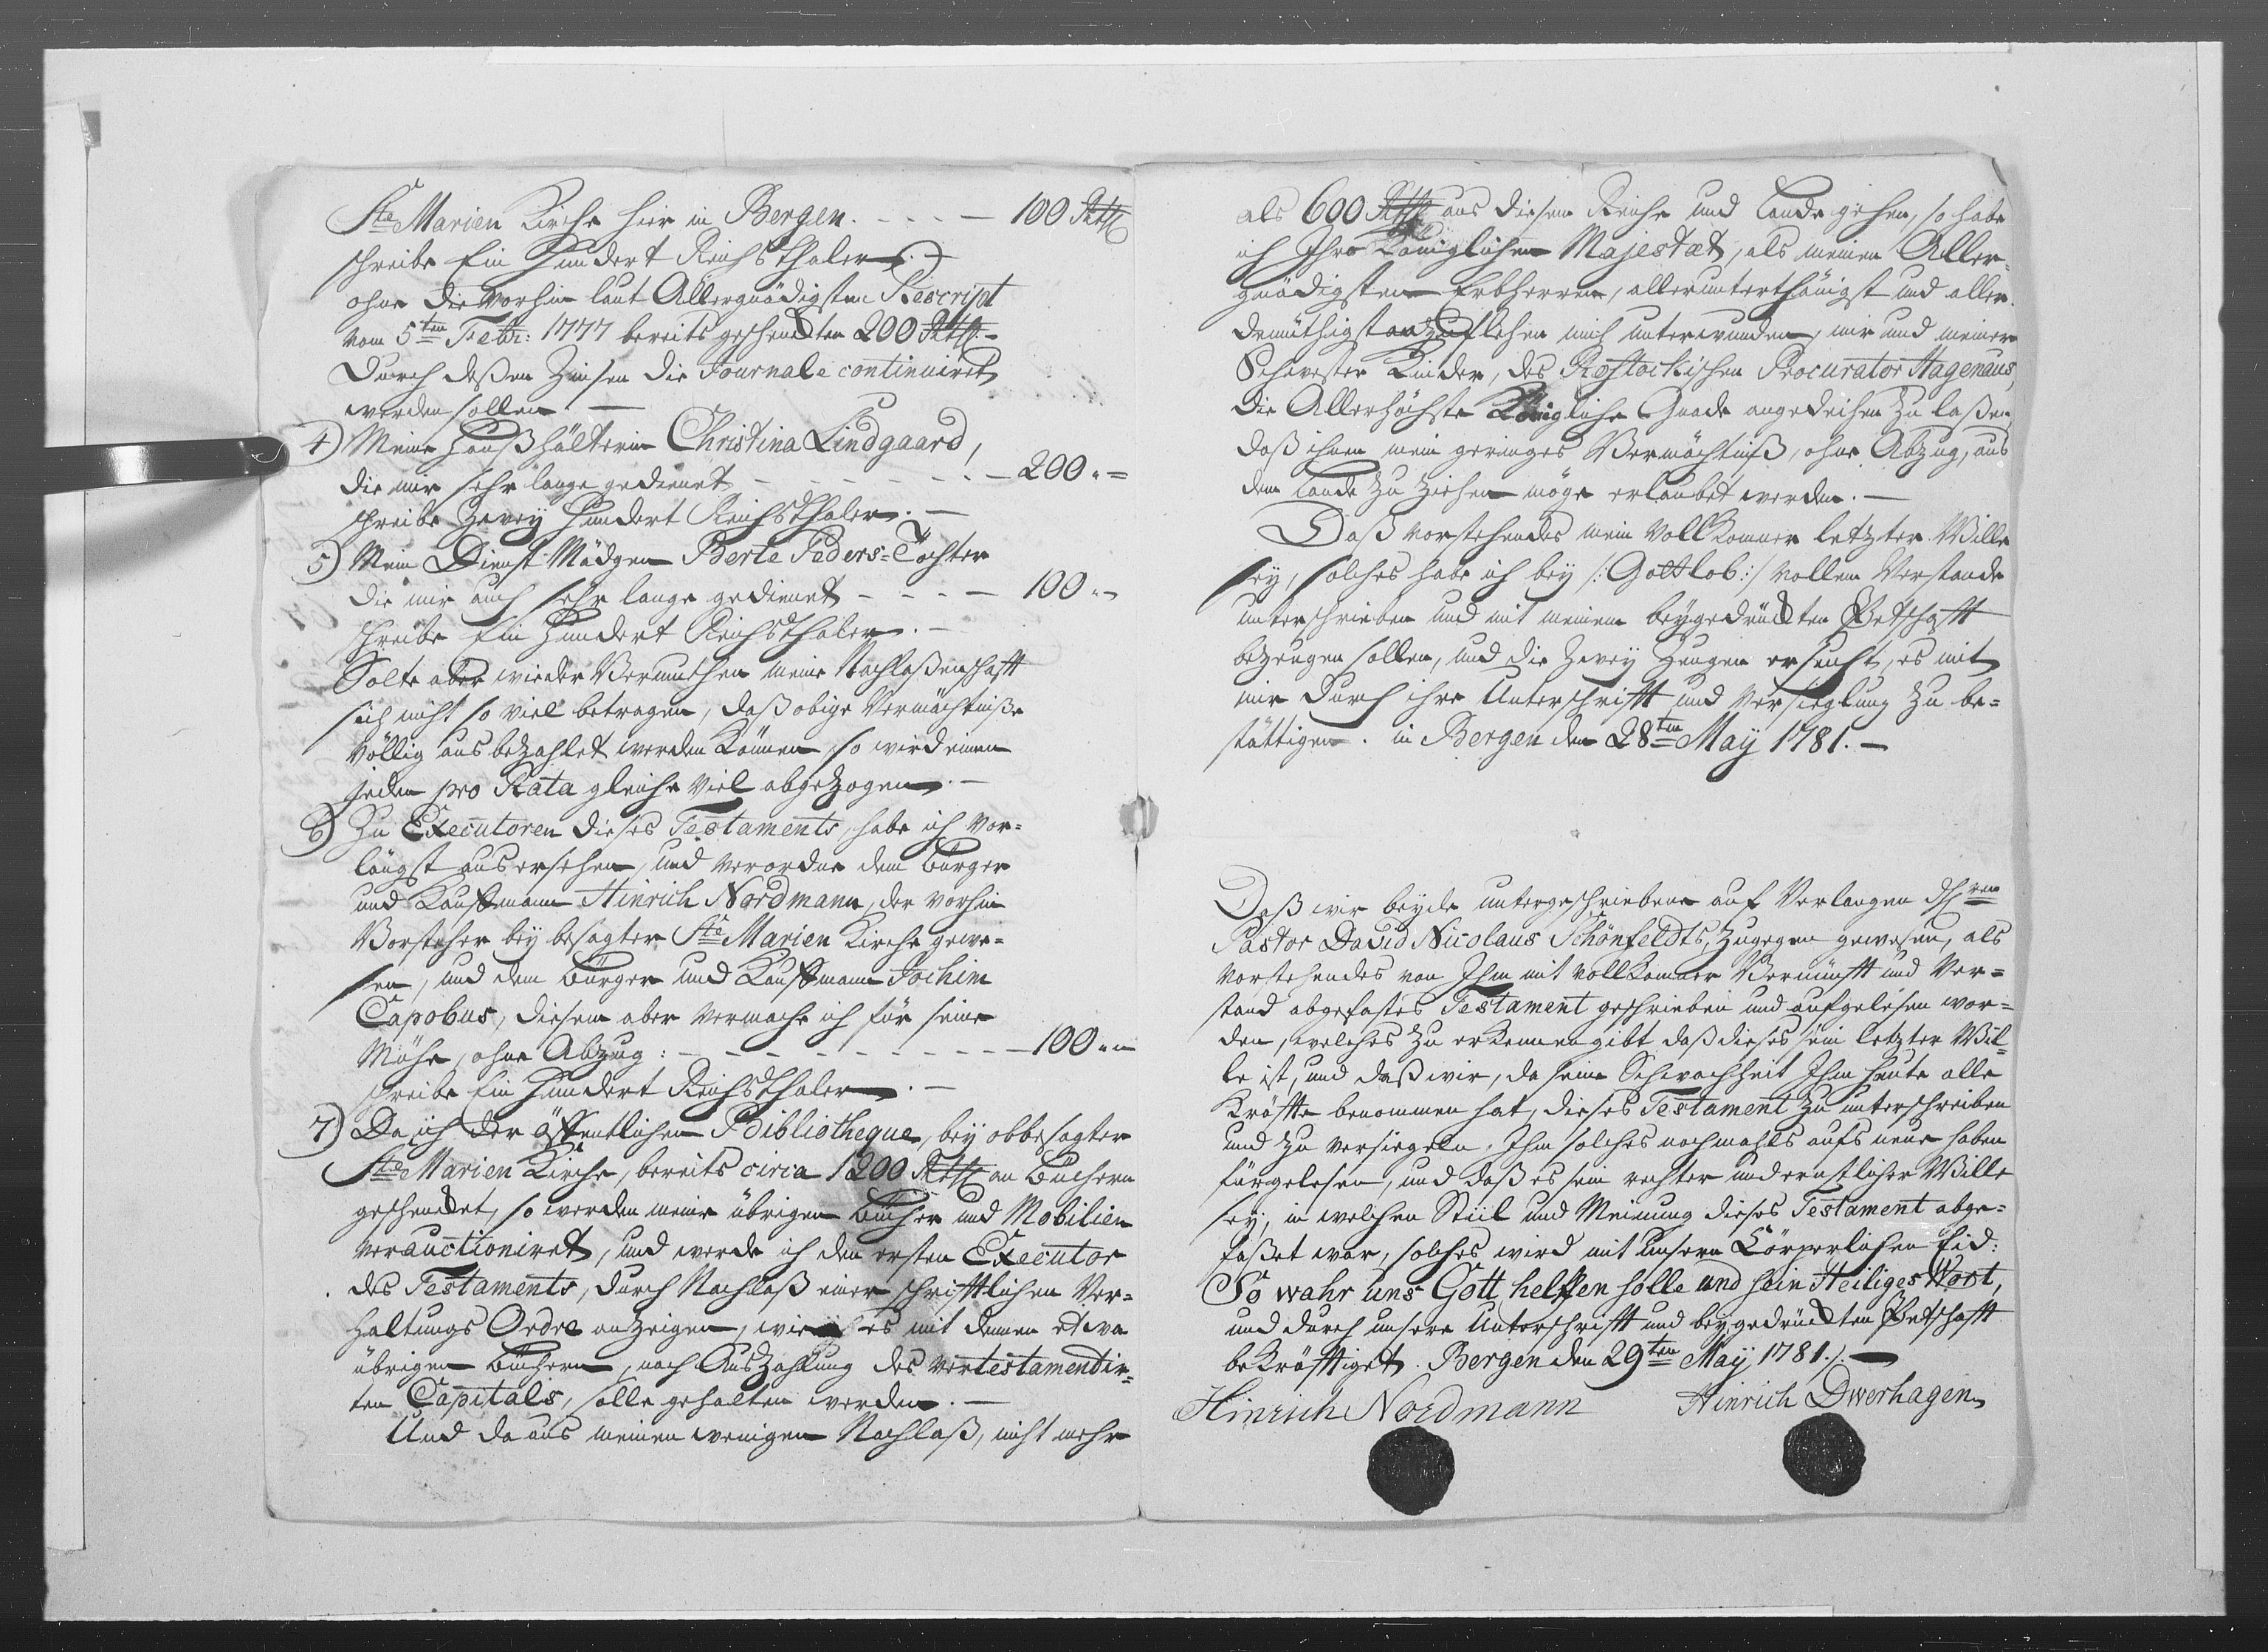 Ste Marien Kirche hier in Bergen. - - - - 100 Rthlr
schreibe Ein Hundert Reichsthaler.
ohne die vorhin laut Allergnädigsten Rescript
vom 5ten Febr: 1777 bereits geschenckten 200 Rthlr. -
Durch deßen Zinsen die Journale continuiret
werden sollen. -
4) Meine Haußhälterin Christina Lindgaard,
die mir sehr lange gedienet - - - - - - - 200 " =
schreibe Zwey Hundert Reichsthaler. -
5) Mein Dienst-Mädgen Berte Peders-Tochter
die mir auch sehr lange gedienet - - - - 100 " -
schreibe Ein Hundert Reichsthaler. -
Solte aber wieder Vermuthen meine Nachlaßenschafft
sich nicht so viel betragen, daß obige Vermächtniße
völlig ausbezahlet werden können, so wird einem
jeden pro Rata gleiche viel abgezogen. -
6) Zu Executoren dieses Testaments, habe ich vor=
längst ausersehen, und verordne den Bürger
und Kauffmann Hinrich Nordmann, der vorhin
Vorsteher bey besagter Ste Marien Kirche gewe=
sen, und den Bürger und Kauffmann Jochim
Capobus, diesem aber vermache ich für seine
Mühe, ohne Abzug: - - - - - - - - - - 100 " "
schreibe Ein Hundert Reichsthaler. -
7) Da ich der öffentlichen Bibliotheque, bey obbesagter
Ste Marien Kirche, bereits circa 1200 Rthlr an Büchern
geschencket, so werden meine übrigen Bücher und Mobilien
verauctioniret, und werde ich den ersten Executor
des Testaments, durch Nachlaß einer schrifftlichen Ver=
haltungs Ordre anzeigen, wie es mit denen etwa
übrigen Büchern, nach Auszahlung des vertestamentir=
ten Capitals, solle gehalten werden. -
Und da aus meinen wenigen Nachlaß, nicht mehr
als 600 Rthlr aus diesem Reiche und Lande gehen, so habe
ich Ihro Königlichen Majestæt, als meinen Aller=
gnädigsten Erbherren, allerunterthänigst und aller=
demüthigst anzuflehen mich unterwunden, mir und meiner
Schwester Kinder, des Rostockischen Procurator Hagenaus,
die Allerhöchste Königliche Gnade angedeihen zu laßen,
daß ihnen mein geringes Vermächtniß, ohne Abzug, aus
dem Lande zu ziehen möge erlaubet werden. -
Daß vorstehendes mein vollkommer letzter Wille
sey, solches habe ich bey /: Gottlob :/ vollem Verstande
unterschrieben und mit meinem beygedrückten Petschafft
bezeugen sollen, und die zwey Zeugen ersucht, es mit
mir durch ihre Unterschrifft und Versieglung zu be=
stättigen. in Bergen den 28ten May 1781. -
Daß wir beyde untergeschriebene auf Verlangen
Pastor David Nicolaus Schönfeldts, zugegen gewesen, als
vorstehendes von Ihm mit vollkommer Vernunfft und Ver=
stand abgefastes Testament geschrieben und aufgelesen wor=
den, welches zu erkennen gibt daß dieses sein letzter Wil=
le ist, und daß wir, da seine Schwachheit Ihm heute alle
Kräffte benommen hat, dieses Testament zu unterschreiben
und zu versiegeln, Ihm solches nochmahls aufs neue haben
fürgelesen, und daß es sein rechter und ernstlicher Wille
sey, in welchen Stiil und Meinung dieses Testament abge=
faßet war, solches wird mit unsern Cörperlichen Eid:
So wahr uns Gott helffen solle und sein Heiliges Wort,
und durch unsere Unterschrifft und beygedrückten Petschafft
bekräfftiget. Bergen den 29ten May 1781. -
Hinrich Nordmann Hinrich Dwerhagen